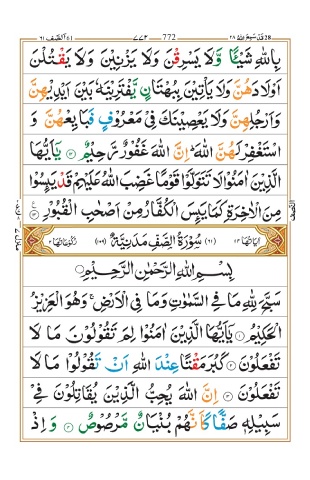 قد سمع الله ٢٨ 772 ٧٧٢ الصف ٦١
بِاللّٰهِ شَيْـًٔا وَّلَا يَسْرِقْنَ وَلَا يَزْنِيْنَ وَلَا يَقْتُلْنَ
اَوْلَادَهُنَّ وَلَا يَاْتِيْنَ بِبُهْتَانٍ يَّفْتَرِيْنَهٗ بَيْنَ اَيْدِيْهِنَّ
وَاَرْجُلِهِنَّ وَلَا يَعْصِيْنَكَ فِيْ مَعْرُوْفٍ فَبَايِعْهُنَّ وَ
اسْتَغْفِرْ لَهُنَّ اللّٰهَ ؕ اِنَّ اللّٰهَ غَفُوْرٌ رَّحِيْمٌ ۞ يٰۤاَيُّهَا
الَّذِيْنَ اٰمَنُوْا لَا تَتَوَلَّوْا قَوْمًا غَضِبَ اللّٰهُ عَلَيْهِمْ قَدْ يَىِٕسُوْا
مِنَ الْاٰخِرَةِ كَمَا يَىِٕسَ الْكُفَّارُ مِنْ اَصْحٰبِ الْقُبُوْرِ ۞
اٰيَاتُهَا ١٤ (٦١) سُوْرَةُ الصَّفِّ مَدَنِيَّةٌ (١٠٩) رُكُوْعَاتُهَا ٢
بِسْمِ اللّٰهِ الرَّحْمٰنِ الرَّحِيْمِ
سَبَّحَ لِلّٰهِ مَا فِي السَّمٰوٰتِ وَمَا فِي الْاَرْضِ ۚ وَهُوَ الْعَزِيْزُ
الْحَكِيْمُ ۞ يٰۤاَيُّهَا الَّذِيْنَ اٰمَنُوْا لِمَ تَقُوْلُوْنَ مَا لَا
تَفْعَلُوْنَ ۞ كَبُرَ مَقْتًا عِنْدَ اللّٰهِ اَنْ تَقُوْلُوْا مَا لَا
تَفْعَلُوْنَ ۞ اِنَّ اللّٰهَ يُحِبُّ الَّذِيْنَ يُقَاتِلُوْنَ فِيْ
سَبِيْلِهٖ صَفًّا كَاَنَّهُمْ بُنْيَانٌ مَّرْصُوْصٌ ۞ وَاِذْ